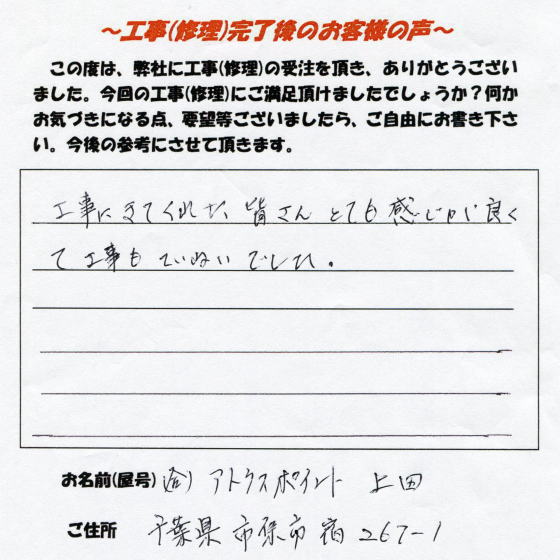 ～工事(修理)完了後のお客様の声～
この度は、弊社に工事(修理)の受注を頂き、ありがとうござい
ました。今回の工事(修理)にご満足頂けましたでしょうか?何か
お気づきになる点、要望等ございましたら、ご自由にお書き下さ
い。今後の参考にさせて頂きます。
工事にきてくれた 皆さん とても 感じが 良く
て 工事も ていねい でした。
お名前(屋号) アトラスポイント 上田
ご住所 千葉県 市原市 宿 267-1